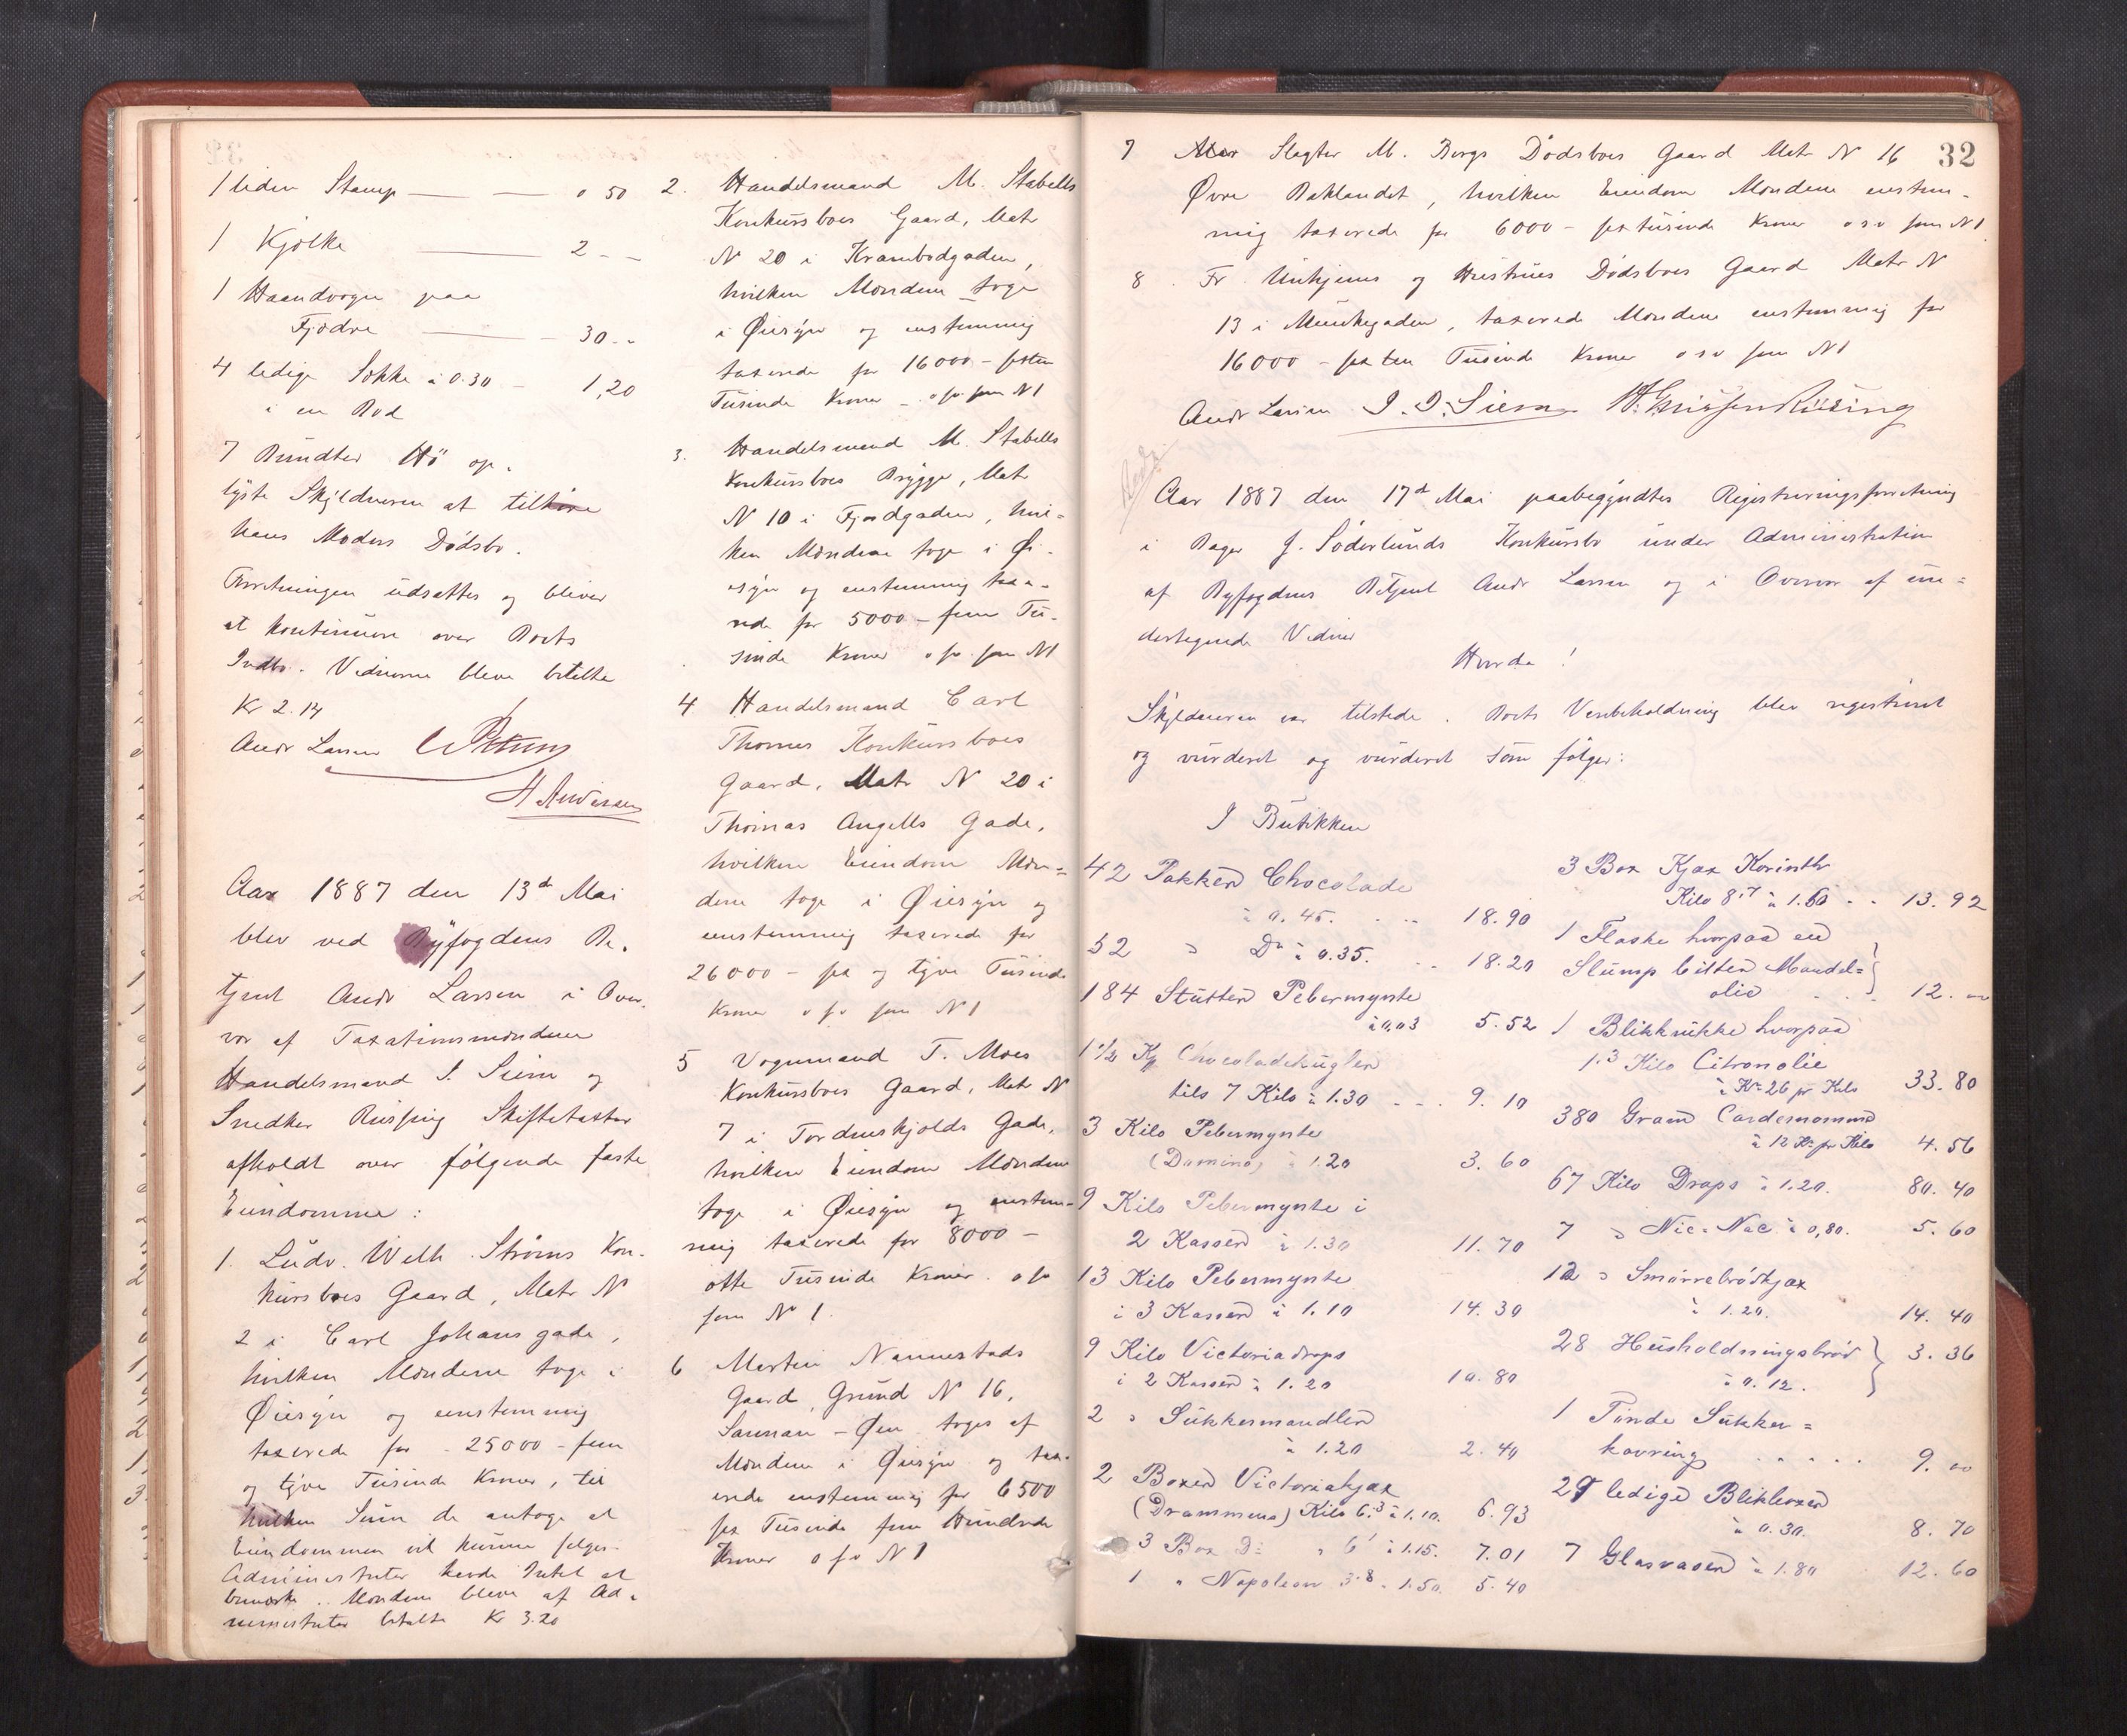 1 liden Stamp — — 0 50
1 Kjølke — 2 - -
1 Haandvogn paa
Fjødre — 30 - -
4 ledige Sække à 0.30 - 1,20
i en Bod
7 Bundter Hø op-
lyste Skyldneren at tilhøre
hans Moders Dødsbo.
Forretningen udsættes og bliver
at kontinuere over Boets
Indbo. Vidnerne bleve betalte
Kr 2.14
Andr Larsen
H Andersen
Aar 1887 den 13de Mai
blev ved Byfogdens Be-
tjent Andr Larsen i Over-
vær af Taxationsmændene
Handelsmand I. Siem og
Snedker Rüssing Skiftetaxter
afholdt over følgende faste
Eiendomme:
1. Ludv. Wilh. Strøms Kon-
kursboes Gaard, Matr N
2 i Carl Johans gade,
hvilken Mændene toge i
Øiesyn og eenstemmig
taxerede for - 25000 - fem
og tyve Tusinde Kroner, til
hvilken Sum de antoge at
Eiendommen vil kunne sælges.
Administrator havde Intet at
bemærke. Mændene bleve af Ad-
ministrator betalte Kr 3.20
2. Handelsmand M. Stabells
Konkursboes Gaard, Matr
N 20 i Krambodgaden,
hvilken Mændene toge
i Øiesyn og enstemmig
taxerede for 16000 - sexten
Tusinde Kroner - o s v som N 1
3. Handelsmand M. Stabells
Konkursboes Brygge, Matr
N 10 i Fjordgaden, hvil-
ken Mændene toge i Øi-
esyn og enstemmig taxe-
rede for 5000 - fem Tu-
sinde Kroner o s v som N 1
4 Handelsmand Carl
Thornes Konkursboes
Gaard, Matr N 20 i
Thomas Angells Gade,
hvilken Eiendom Mæn-
dene toge i Øiesyn og
eenstemmig taxerede for
26000 - sex og tyve Tusinde
Kroner o s v som N 1
5 Vognmand T. Moes
Konkursboes Gaard, Matr N
7 i Tordenskjolds Gade,
hvilken Eiendom Mændene
toge i Øiesyn og enstem-
mig taxerede for 8000 -
otte Tusinde Kroner. o s v
som N 1.
6 Martin Nannestads
Gaard, Grund N 16,
Sanman - Øen toges af
Mændene i Øiesyn og tax-
erede enstemmig for 6500
sex Tusinde fem Hundrede
Kroner o s v N 1
32
7 Slagter M. Bergs Dødsboes Gaard Matr N 16
Øvre Baklandet, hvilken Eiendom Mændene enstem-
mig taxerede for 6000 - sextusinde Kroner o s v som N 1
8. Fr. Unhjems og Hustrues Dødsboes Gaard Matr N
13 i Munkegaden, taxerede Mændene enstemmig for
16000 - sexten Tusinde Kroner o s v som N 1
Andr Larsen I. D. Siem
Aar 1887 den 17de Mai paabegyndtes Registreringsforretning
i Bager J. Söderlunds Konkursbo under Administration
af Byfogdens Betjent Andr Larsen og i Overvær af un-
dertegnede Vidner
Hvorda!
Skyldneren var tilstede. Boets Varebeholdning blev registreret
og vurderet og vurderet som følger:
I Butikken
42 Pakker Chocolade
à 0.45. - - 18.90
52 " Do à 0.35. - - 18.20
184 Stütter Pebermynte
à 0,03 5.52
1 1/2 Kg Chocoladekugler
tils 7 Kilo à 1.30 - - - 9.10
3 Kilo Pebermynte
(Domino) à 1.20 3.60
9 Kilo Pebermynte i
2 Kasser à 1.30 11.70
13 Kilo Pebermynte
i 3 Kasser à 1.10 14.30
9 Kilo Victoria drops
i 2 Kasser à 1.20 10.80
2 " Sukkermandler
à 1.20 2.40
2 Boxer Victoriakjax
(Drammens) Kilo 6.3 à 1.10. 6.93
3 Box Do " 6.1 à 1.15. 7.01
1 " Napoleon 3.8 - 1.50. 5.40
3 Box Kjax Korinth
Kilo 8.7 à 1.60 - - 13.92
1 Flaske hvorpaa en
Slump bitter Mandel=
olie 12. "
1 Blikkrukke hvorpaa
1.3 Kilo Citronolie
à Kr 26 pr Kilo 33.80
380 Gram Cardemomme
à 12 Kr pr Kilo 4.56
67 Kilo Drops à 1.20. 80.40
7 " Nic-Nac à 0,80. 5.60
12 " Smørrebrødkjax
à 1.20. 14.40
28 Husholdningsbrød 3.36
à 0.12.
1 Tønde Sukker=
kavring . . . . . 9. "
29 ledige Blikboxer
à 0.30. 8.70
7 Glasvaser à 1.80 12.60